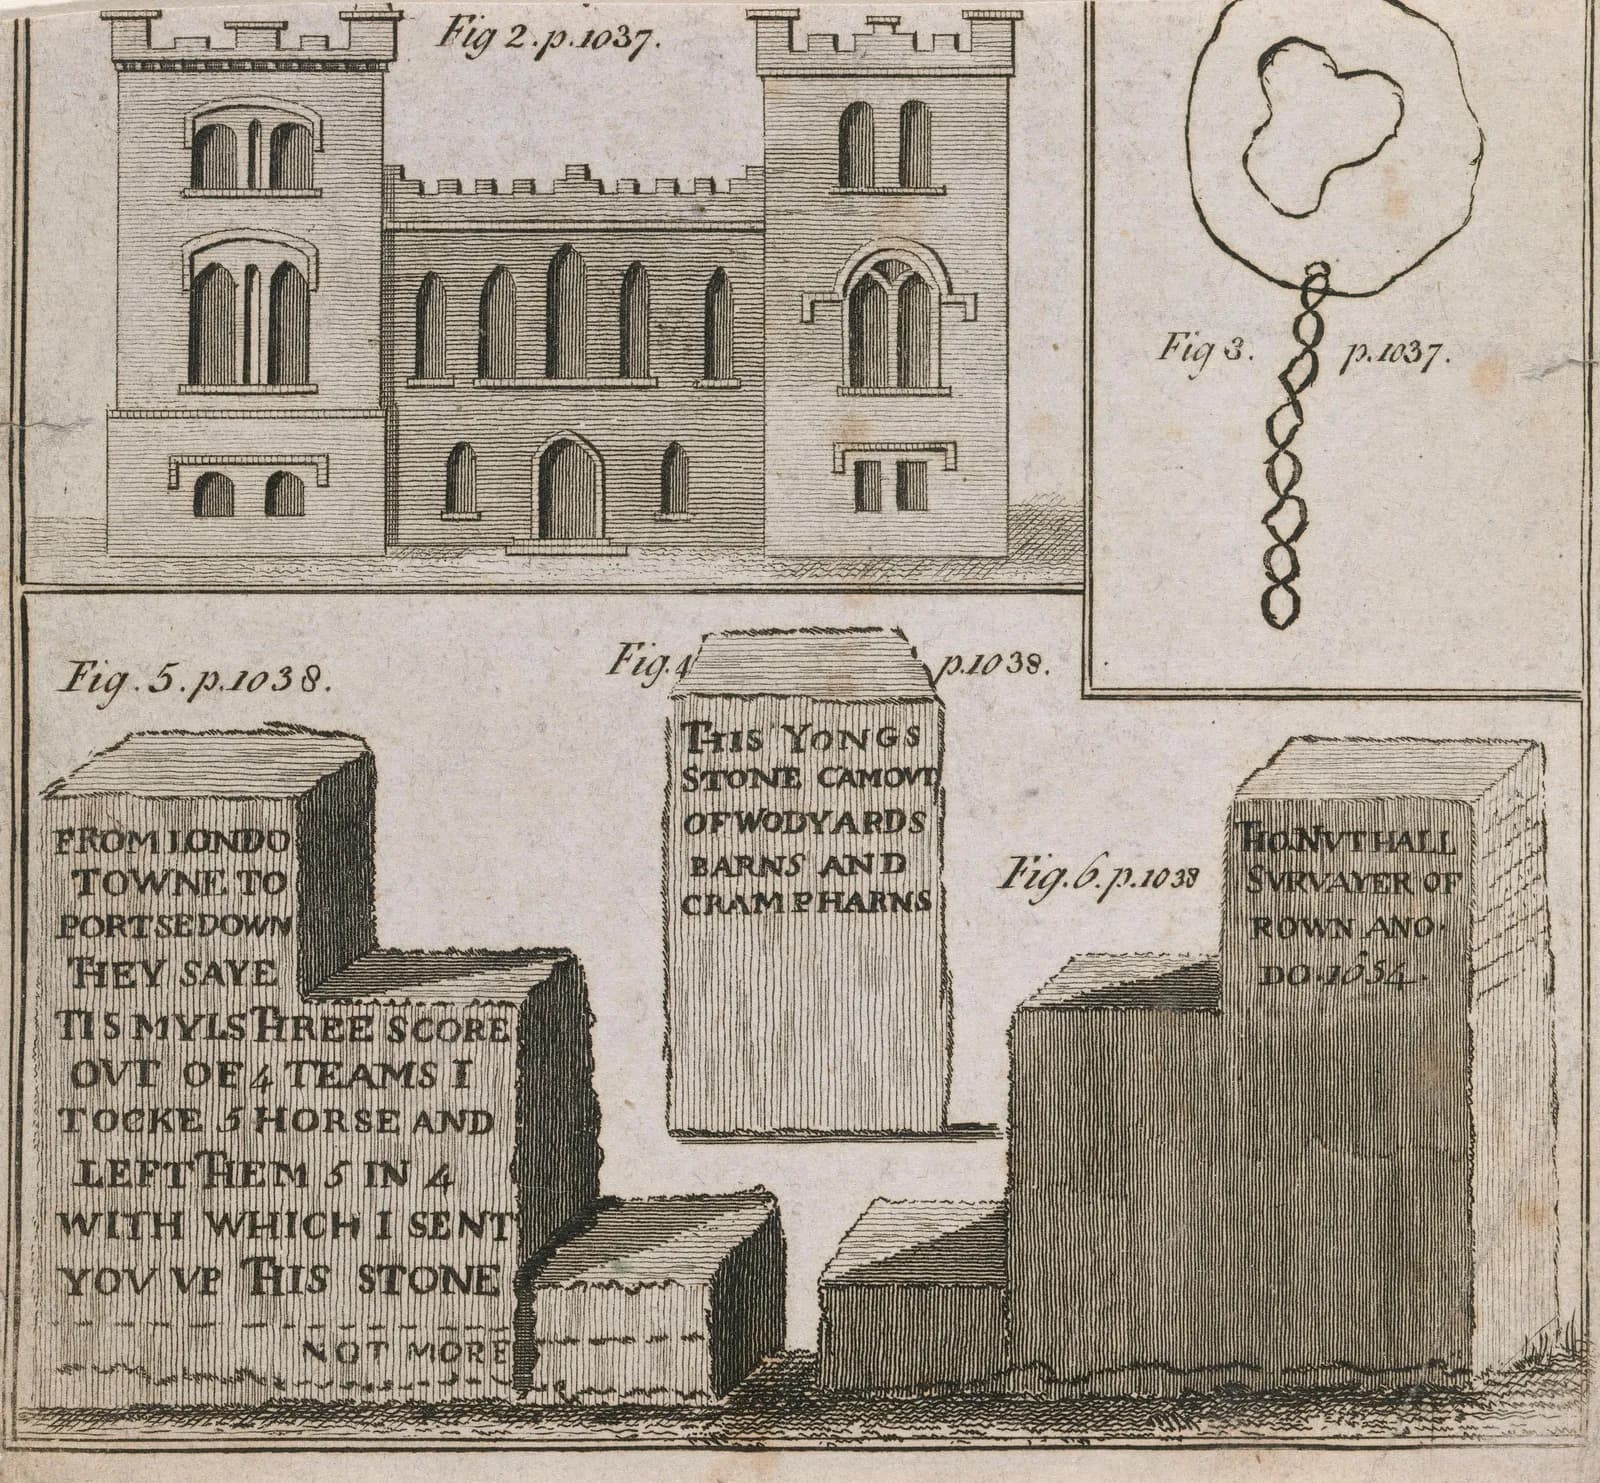 Fig 2. p. 1037.
Fig 3. p. 1037.
Fig. 5. p. 1038.
FROM LONDO
TOWNE TO
PORTSEDOWN
THEY SAYE
TIS MYLS THREE SCORE
OVT OF 4 TEAMS I
TOCKE 5 HORSE AND
LEFT THEM 5 IN 4
WITH WHICH I SENT
YOV VP THIS STONE
NOT MORE
Fig. 4 p. 1038.
THIS YONGS
STONE CAMOVT
OF WODYARDS
BARNS AND
CRAMPHARNS
Fig. 6. p. 1038
THO. NVTHALL
SVRVAYER OF
ROWN ANO.
DO. 1654.